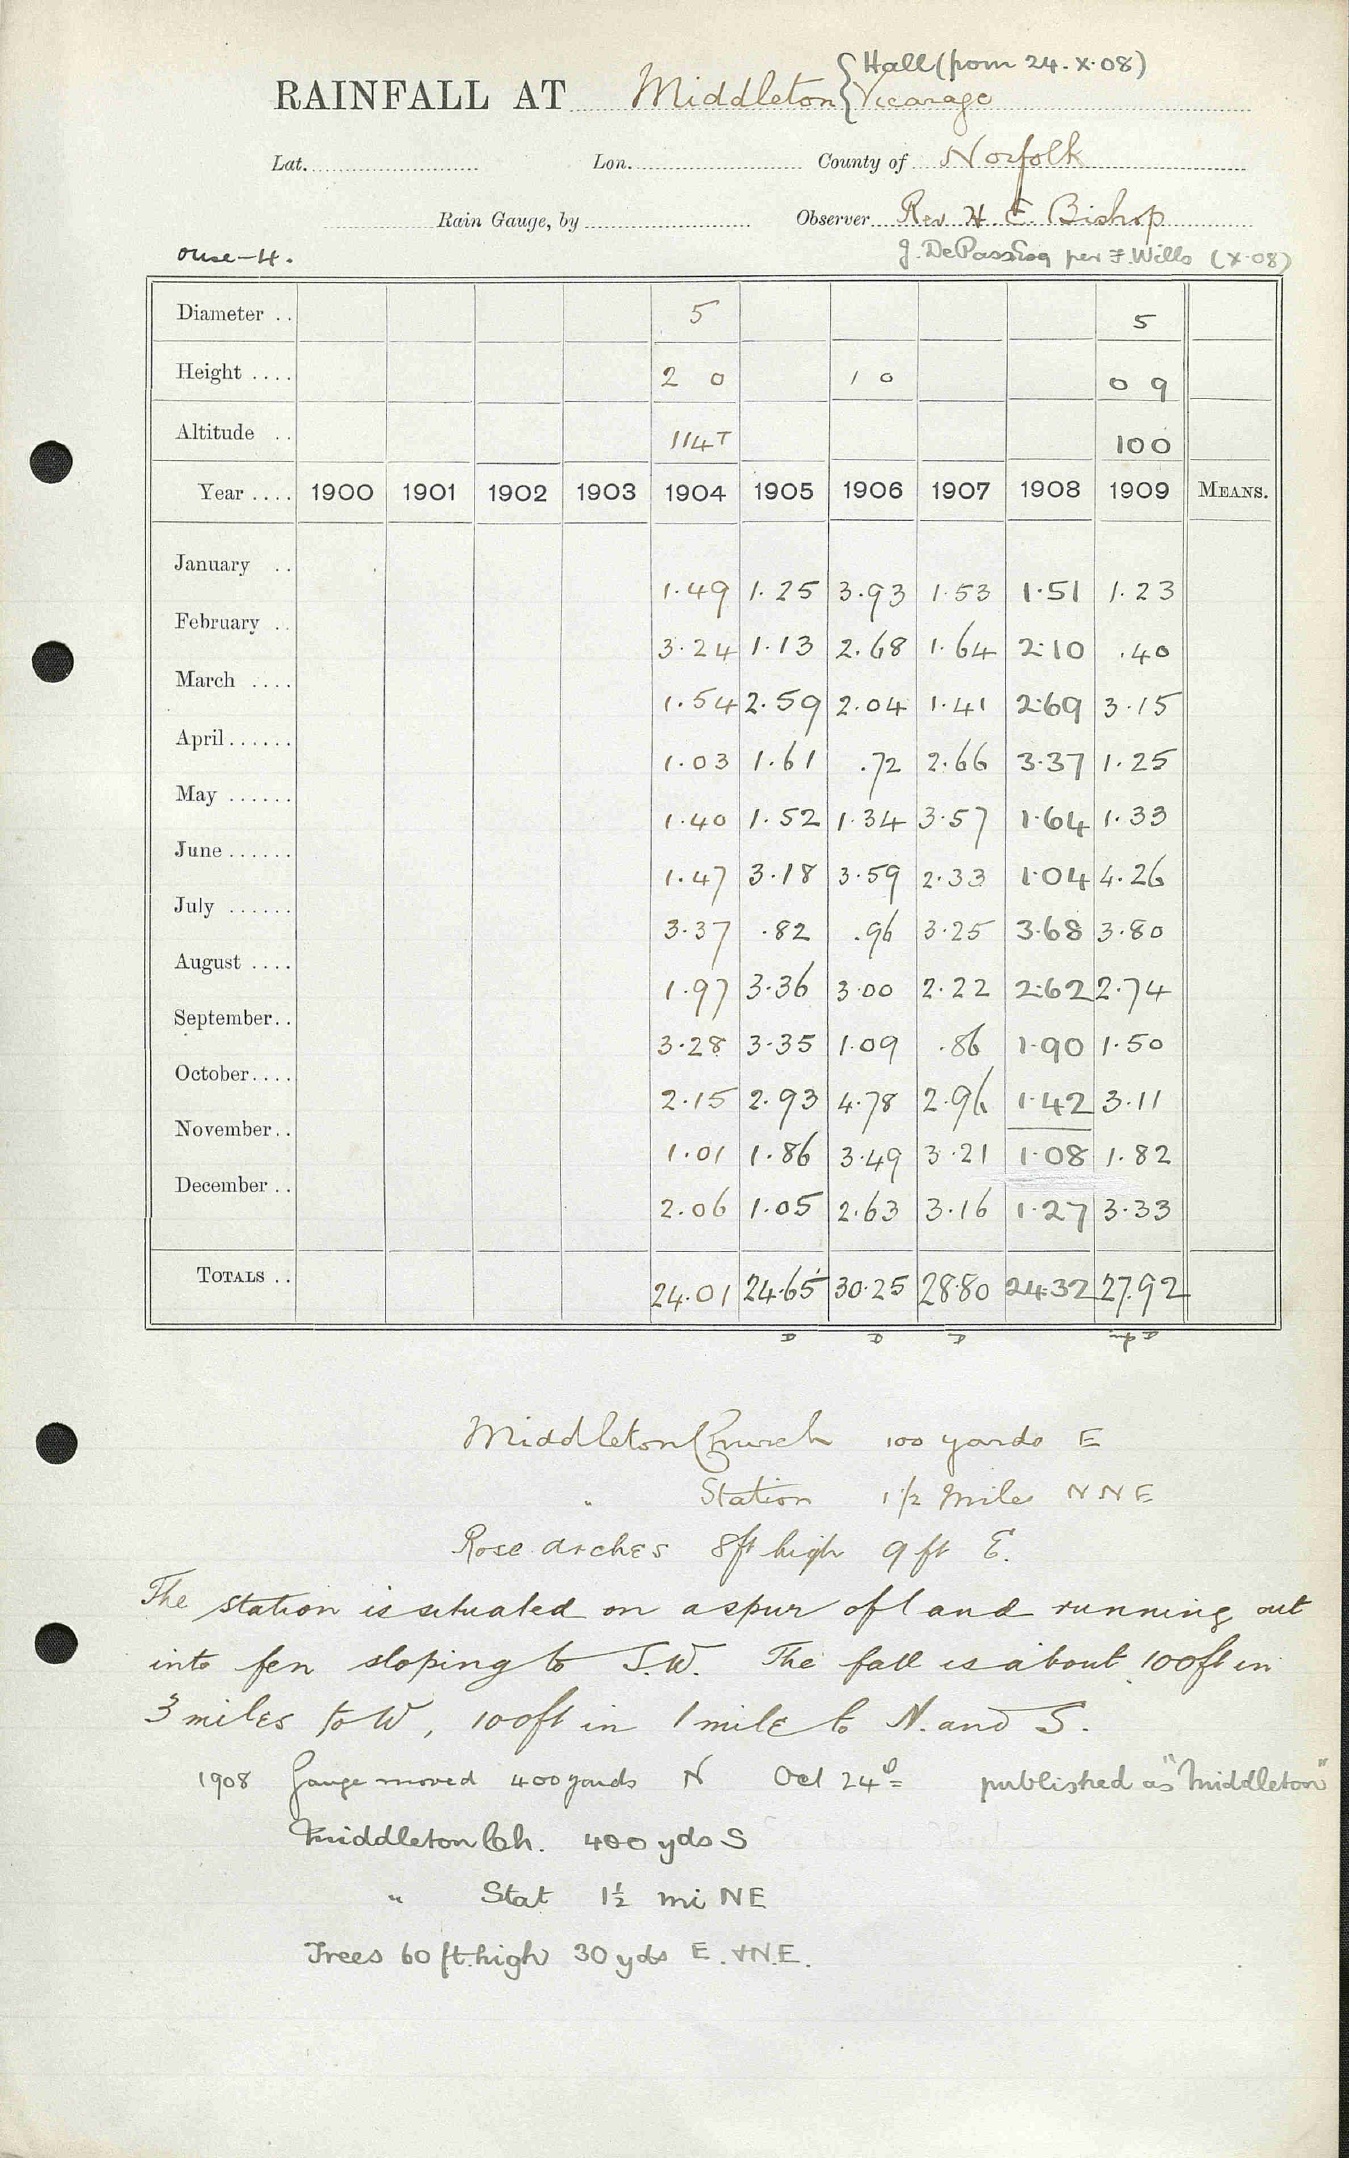 Hall (from 24.X.08)
RAINFALL AT Middleton { Vicarage
Lat. Lon. County of Norfolk
Rain Gauge, by Observer Rev. H. E. Bishop
Ouse-4. J. De Pass Esq per F. Wills (X.08)
Diameter .. 5 5
Height .... 2 0 1 0 0 9
Altitude .. 114T 100
Year .... 1900 1901 1902 1903 1904 1905 1906 1907 1908 1909 MEANS.
January .. 1.49 1.25 3.93 1.53 1.51 1.23
February .. 3.24 1.13 2.68 1.64 2.10 .40
March .... 1.54 2.59 2.04 1.41 2.69 3.15
April...... 1.03 1.61 .72 2.66 3.37 1.25
May ...... 1.40 1.52 1.34 3.57 1.64 1.33
June...... 1.47 3.18 3.59 2.33 1.04 4.26
July ...... 3.37 .82 .96 3.25 3.68 3.80
August .... 1.97 3.36 3.00 2.22 2.62 2.74
September.. 3.28 3.35 1.09 .86 1.90 1.50
October.... 2.15 2.93 4.78 2.96 1.42 3.11
November.. 1.01 1.86 3.49 3.21 1.08 1.82
December .. 2.06 1.05 2.63 3.16 1.27 3.33
TOTALS .. 24.01 24.65 30.25 28.80 24.32 27.92
D D D D
Middleton Church 100 yards E
" Station 1 1/2 Miles NNE
Rose arches 8ft high 9 ft E.
The station is situated on a spur of land running out
into fen sloping to S.W. The fall is about 100ft in
3 miles to W, 100ft in 1 mile to N. and S.
1908 Gauge moved 400 yards N Oct 24th published as "Middleton"
Middleton Ch. 400 yds S
" Stat 1½ mi NE
Trees 60 ft. high 30 yds E. & N.E.